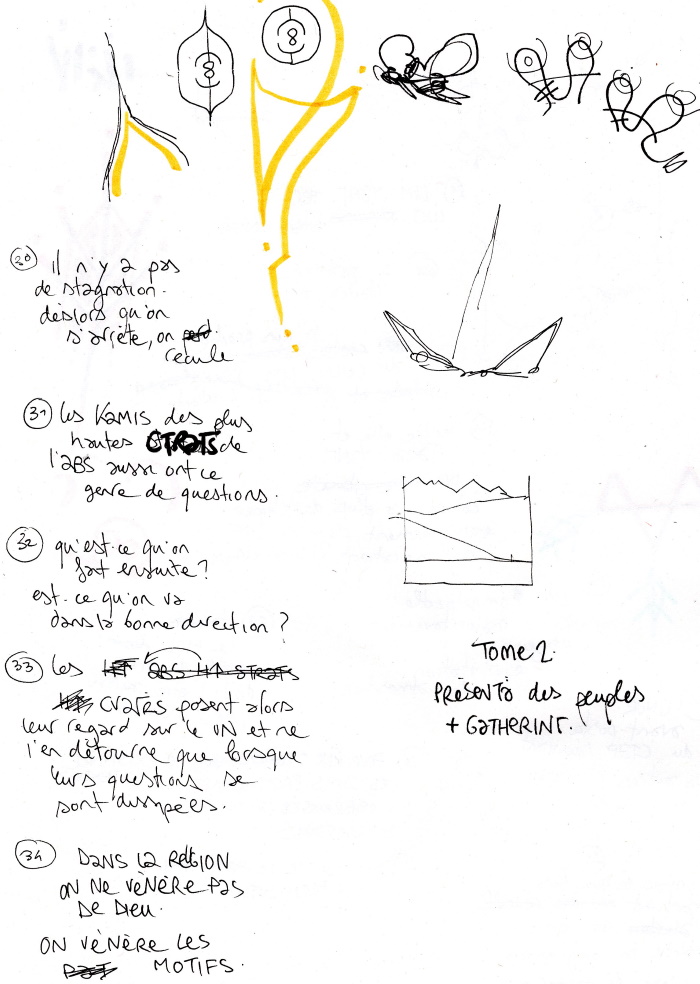 8
8
30 il n'y a pas
de stagnation.
dès lors qu'on
s'arrête, on perd.
recule
31 les Kamis des plus
hautes STRATS de
l'ABS aussi ont ce
genre de questions.
32 qu'est-ce qu'on
fait ensuite?
est-ce qu'on va
dans la bonne direction ?
33 les ABS H1 STRATS
posent alors
leur regard sur le VN et ne
l'en détourne que lorsque
leurs questions se
sont dissipées.
34 DANS LA RELIGION
ON NE VÉNÈRE PAS
DE DIEU.
ON VÉNÈRE LES
MOTIFS.
Tome 2.
PRÉSENTÀ des peuples
+ GATHERINT.